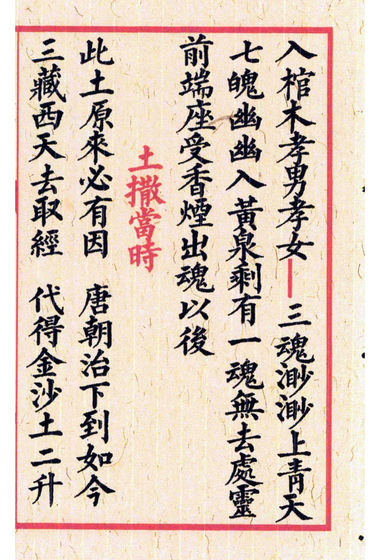 入棺木孝男孝女 三魂渺渺上青天
七魄幽幽入黃泉剩有一魂無去處靈
前端座受香煙出魂以後
土撒當時
此土原來必有因 唐朝治下到如今
三藏西天去取經 代得金沙土二升